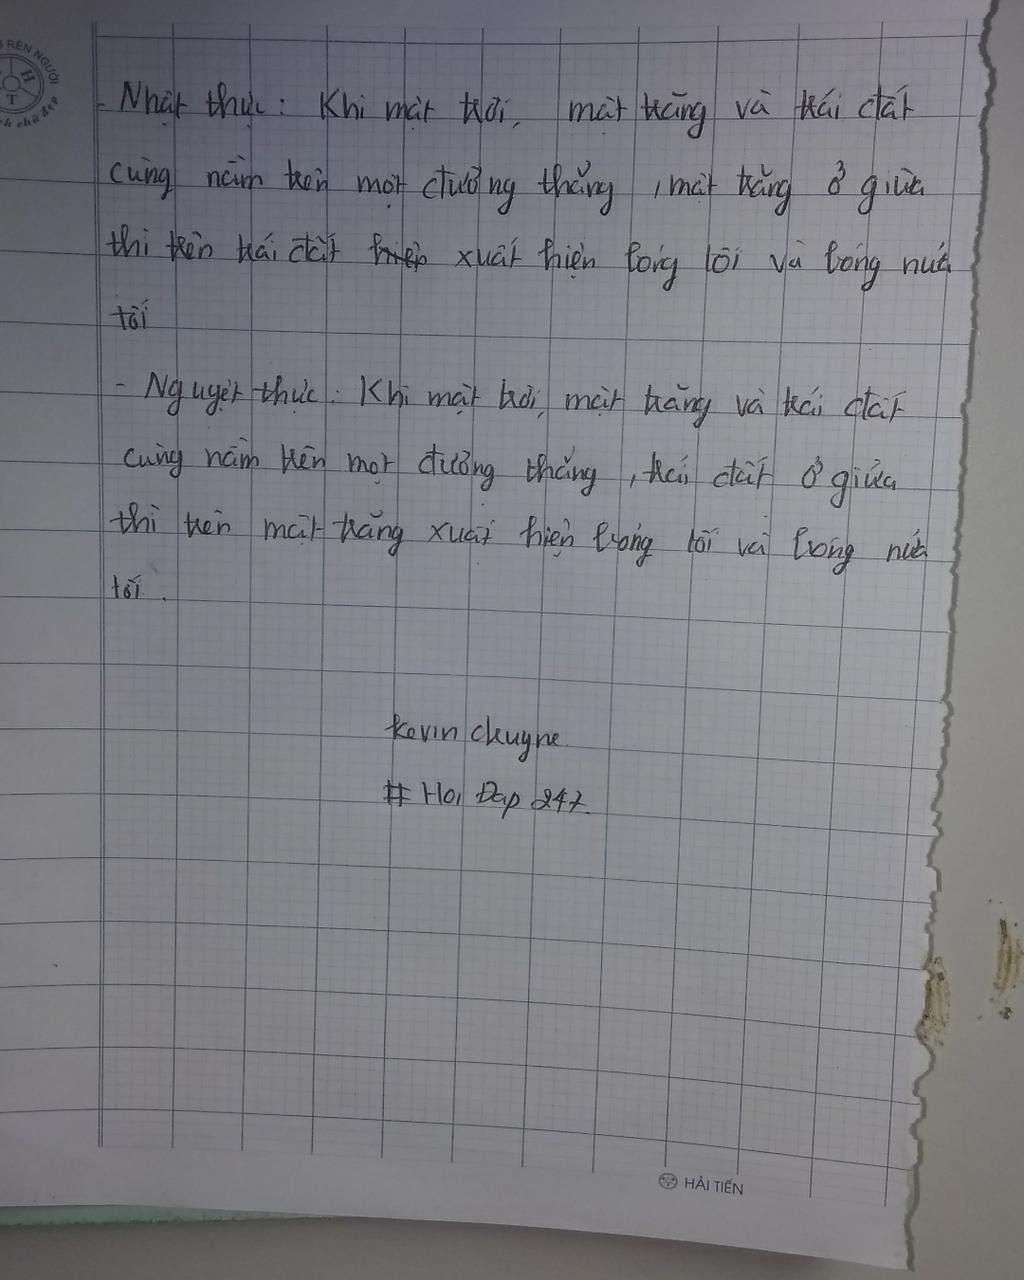 RÈN NGƯỜI
H
T
chữ đẹp
- Nhật thực: Khi mặt trời, mặt trăng và trái đất
cùng nằm trên một đường thẳng, mặt trăng ở giữa
thì trên trái đất xuất hiện bóng tối và bóng nửa
tối
- Nguyệt thực: Khi mặt trời, mặt trăng và trái đất
cùng nằm trên một đường thẳng, trái đất ở giữa
thì trên mặt trăng xuất hiện bóng tối và bóng nửa
tối.
Kevin
# Hoi Đap 247
HẢI TIẾN